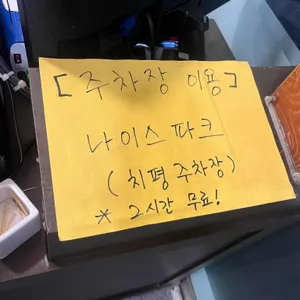 [주차장 이용]
나이스파크
(치평주차장)
* 2시간 무료!